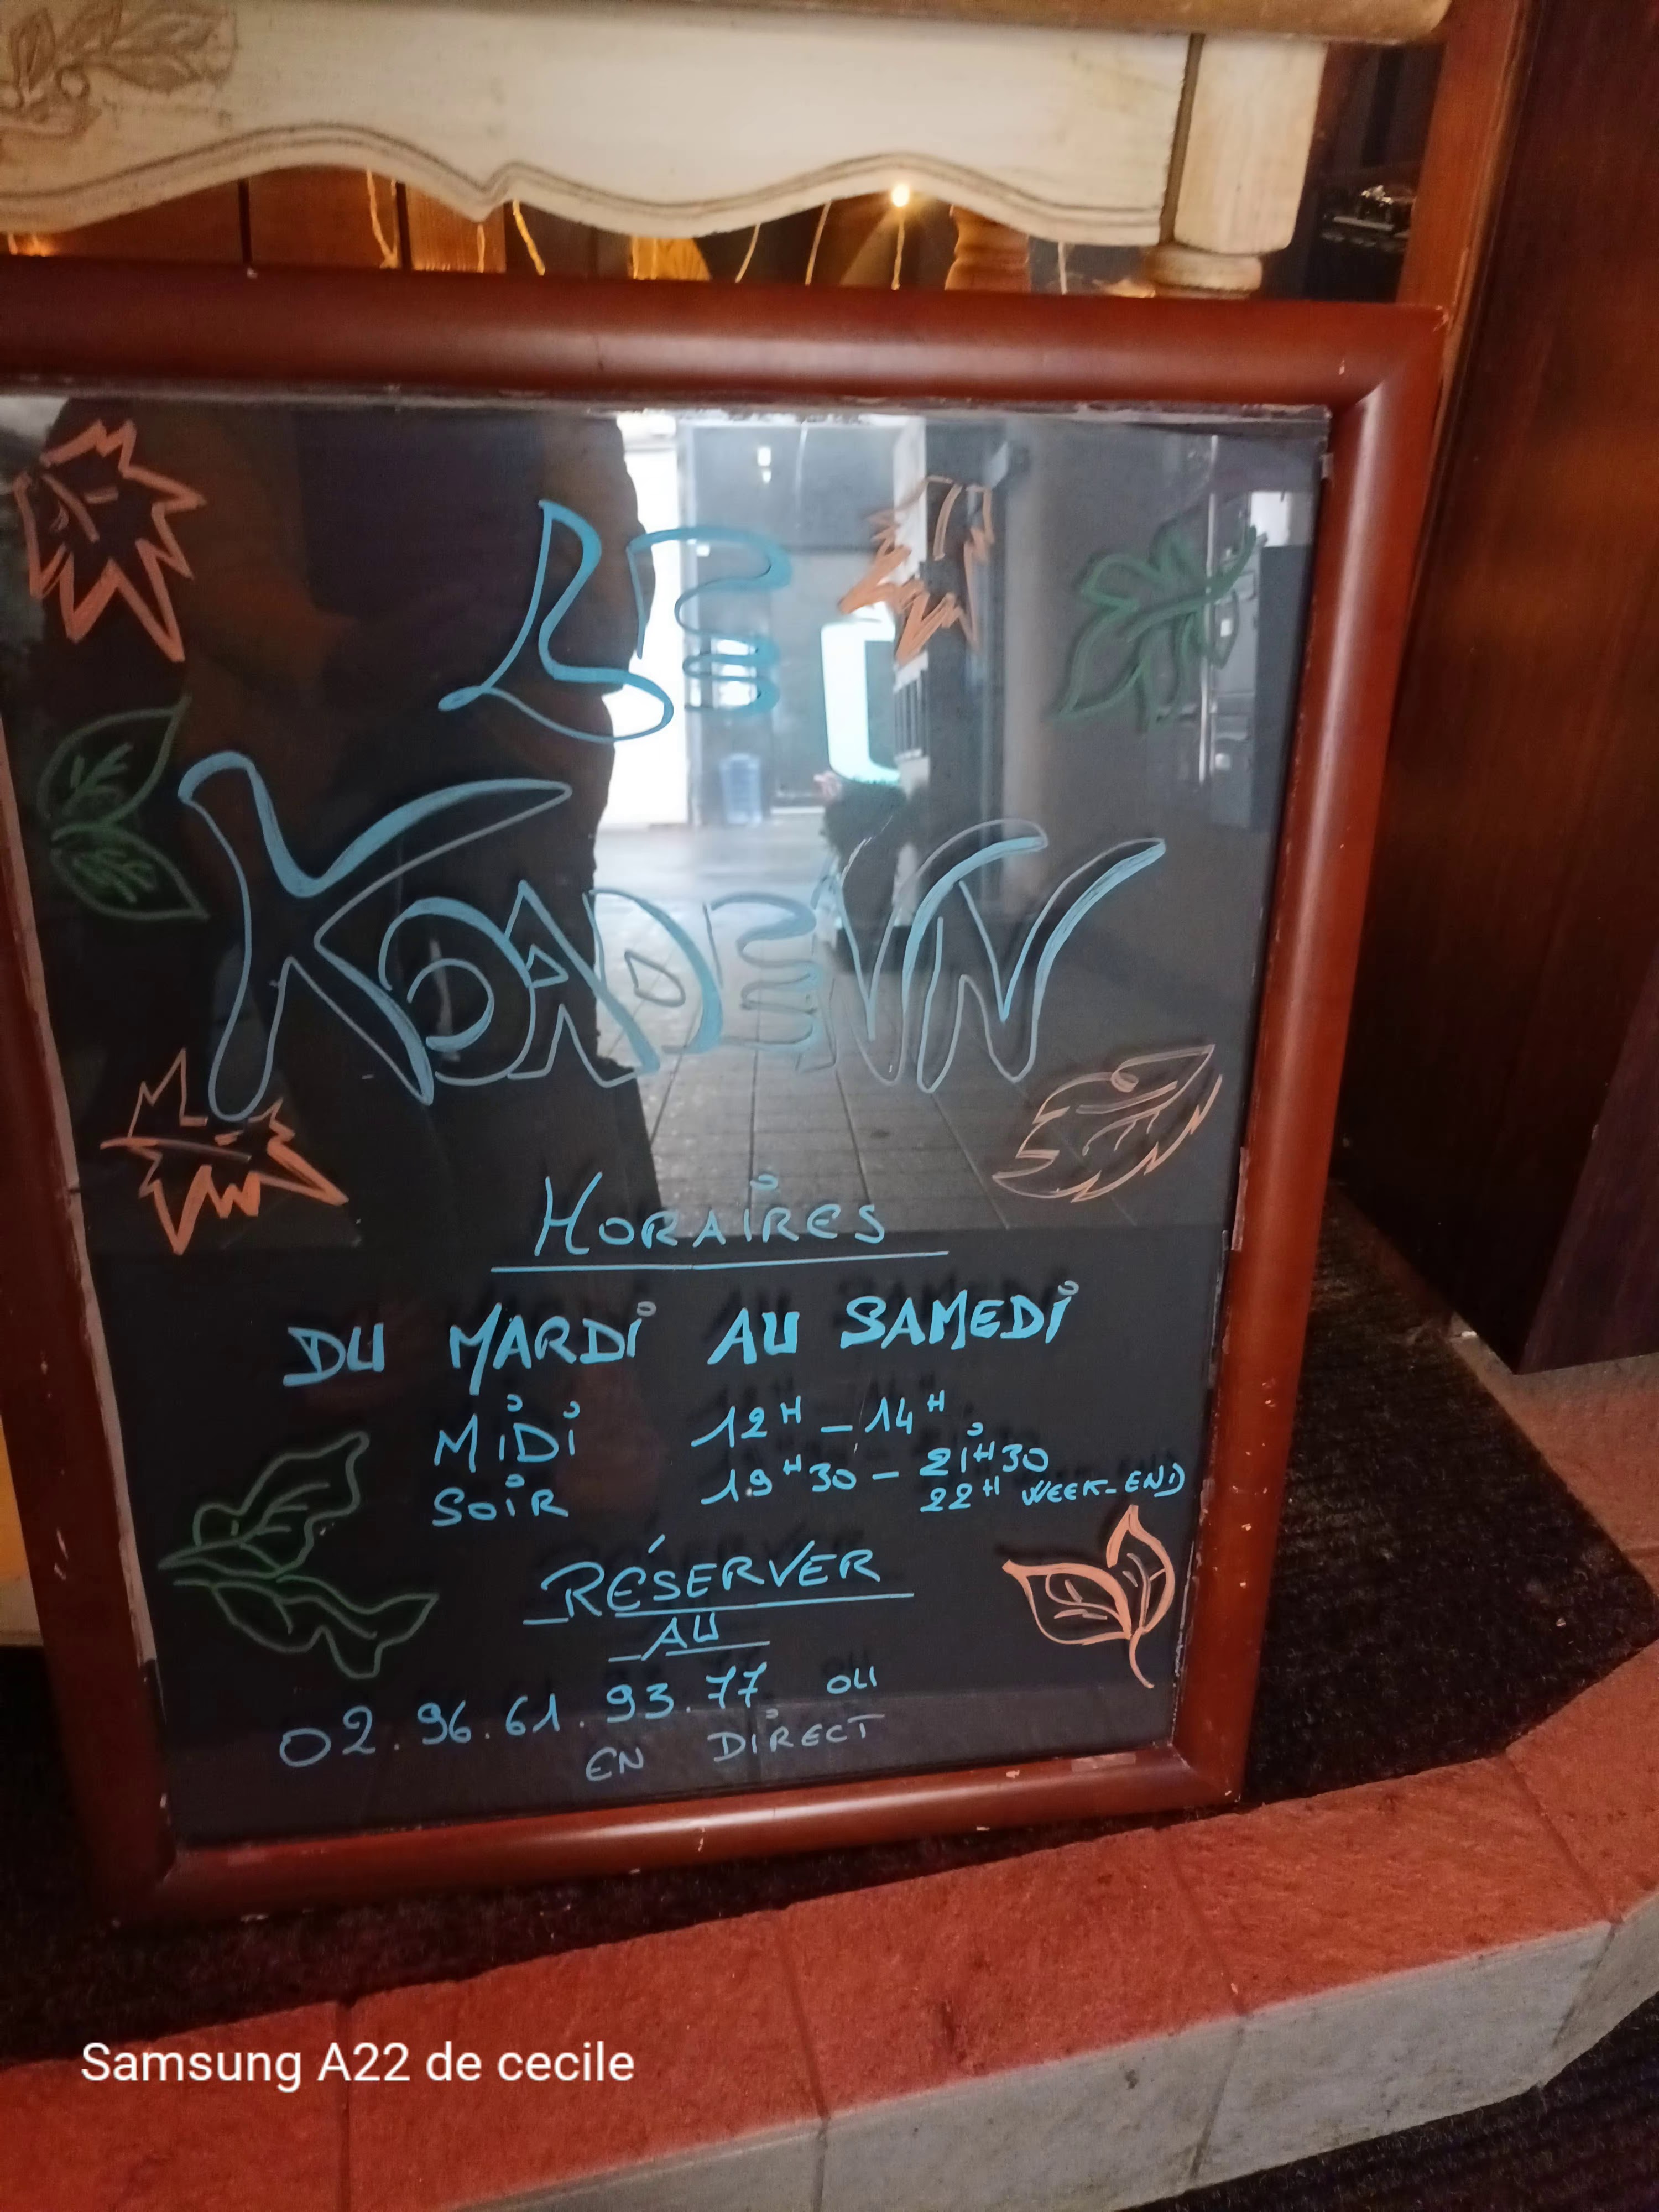 LE
KOADENN
HORAIRES
DU MARDI AU SAMEDI
MIDI 12H - 14H
SOIR 19H30 - 21H30
22H WEEK-END
RÉSERVER
AU
02.96.61.93.77 OU
EN DIRECT
Samsung A22 de cecile